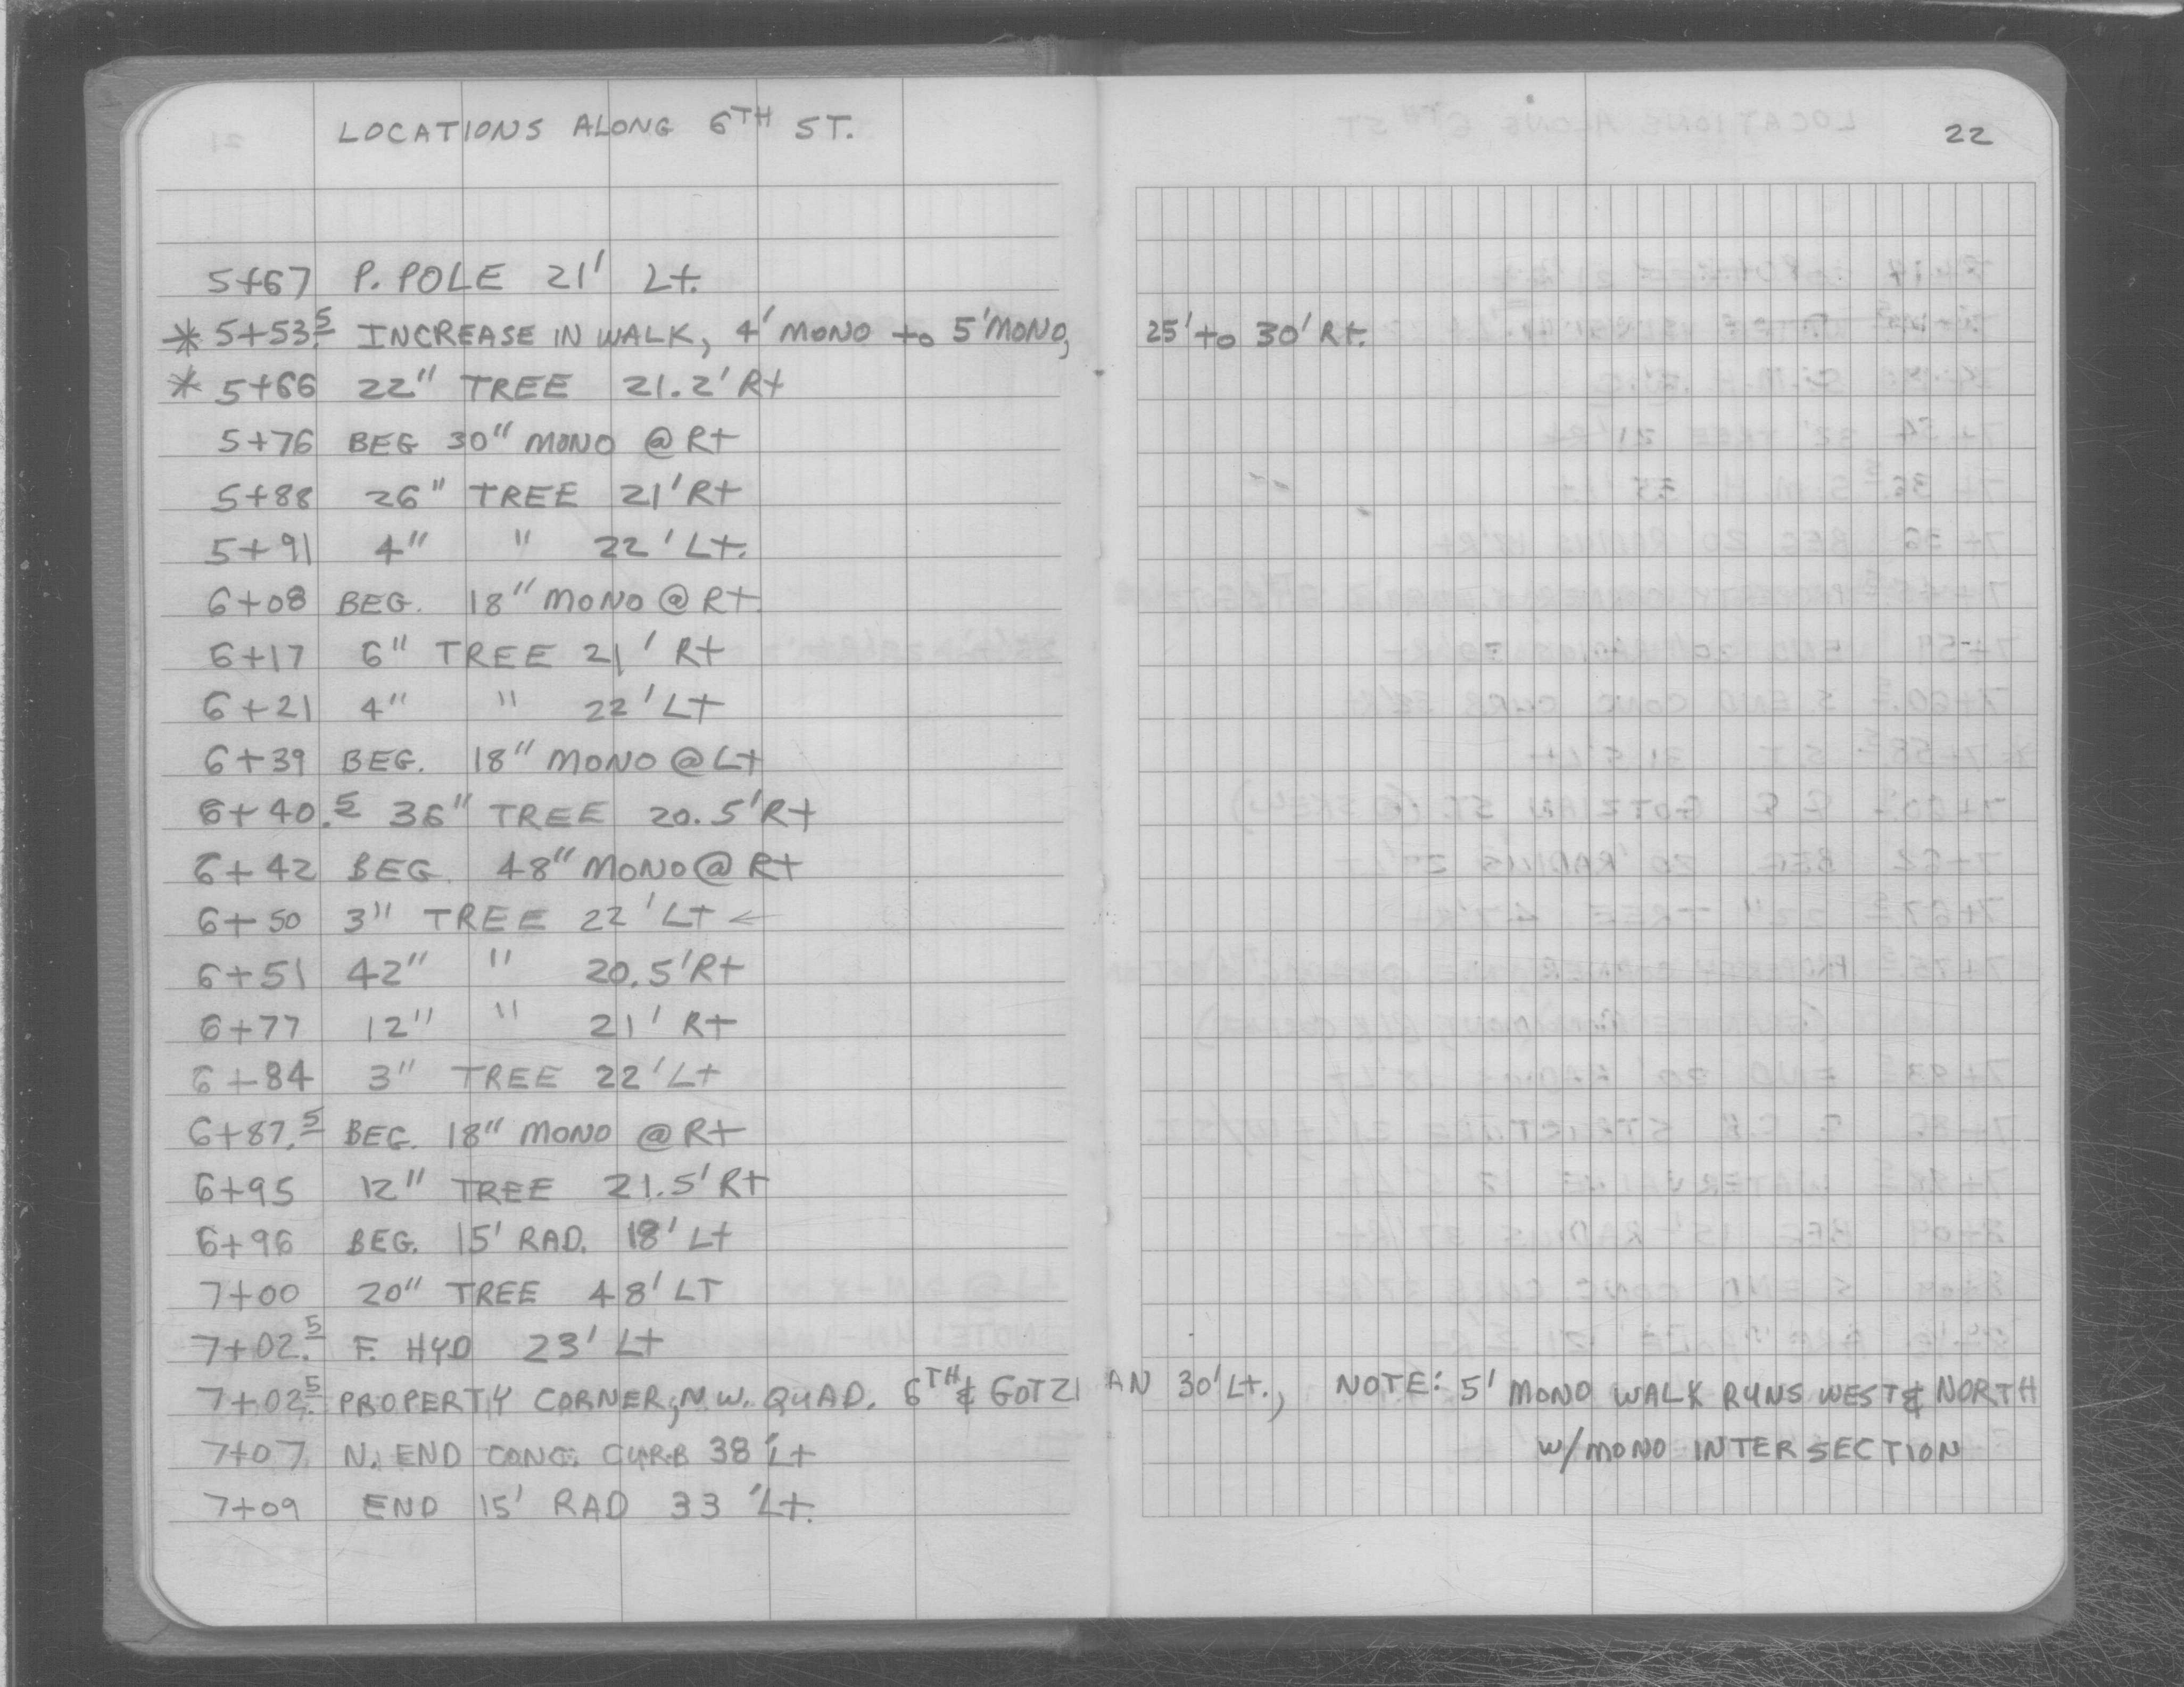 LOCATIONS ALONG 6TH ST.
22
5+67 P. POLE 21' Lt.
* 5+53.5 INCREASE IN WALK, 4' MONO to 5' MONO, 25' to 30' Rt.
* 5+66 22" TREE 21.2' Rt
5+76 BEG 30" MONO @ Rt
5+88 26" TREE 21' Rt
5+91 4" " 22' Lt.
6+08 BEG. 18" MONO @ Rt.
6+17 6" TREE 21' Rt
6+21 4" " 22' Lt
6+39 BEG. 18" MONO @ Lt
6+40.5 36" TREE 20.5' Rt
6+42 BEG. 48" MONO @ Rt
6+50 3" TREE 22' Lt ←
6+51 42" " 20.5' Rt
6+77 12" " 21' Rt
6+84 3" TREE 22' Lt
6+87.5 BEG. 18" MONO @ Rt
6+95 12" TREE 21.5' Rt
6+96 BEG. 15' RAD. 18' Lt
7+00 20" TREE 48' LT
7+02.5 F. HYD 23' Lt
7+02.5 PROPERTY CORNER, N.W. QUAD. 6TH & GOTZIAN 30' Lt., NOTE: 5' MONO WALK RUNS WEST & NORTH
7+07 N. END CONC. CURB 38' Lt w/MONO INTERSECTION
7+09 END 15' RAD 33' Lt.